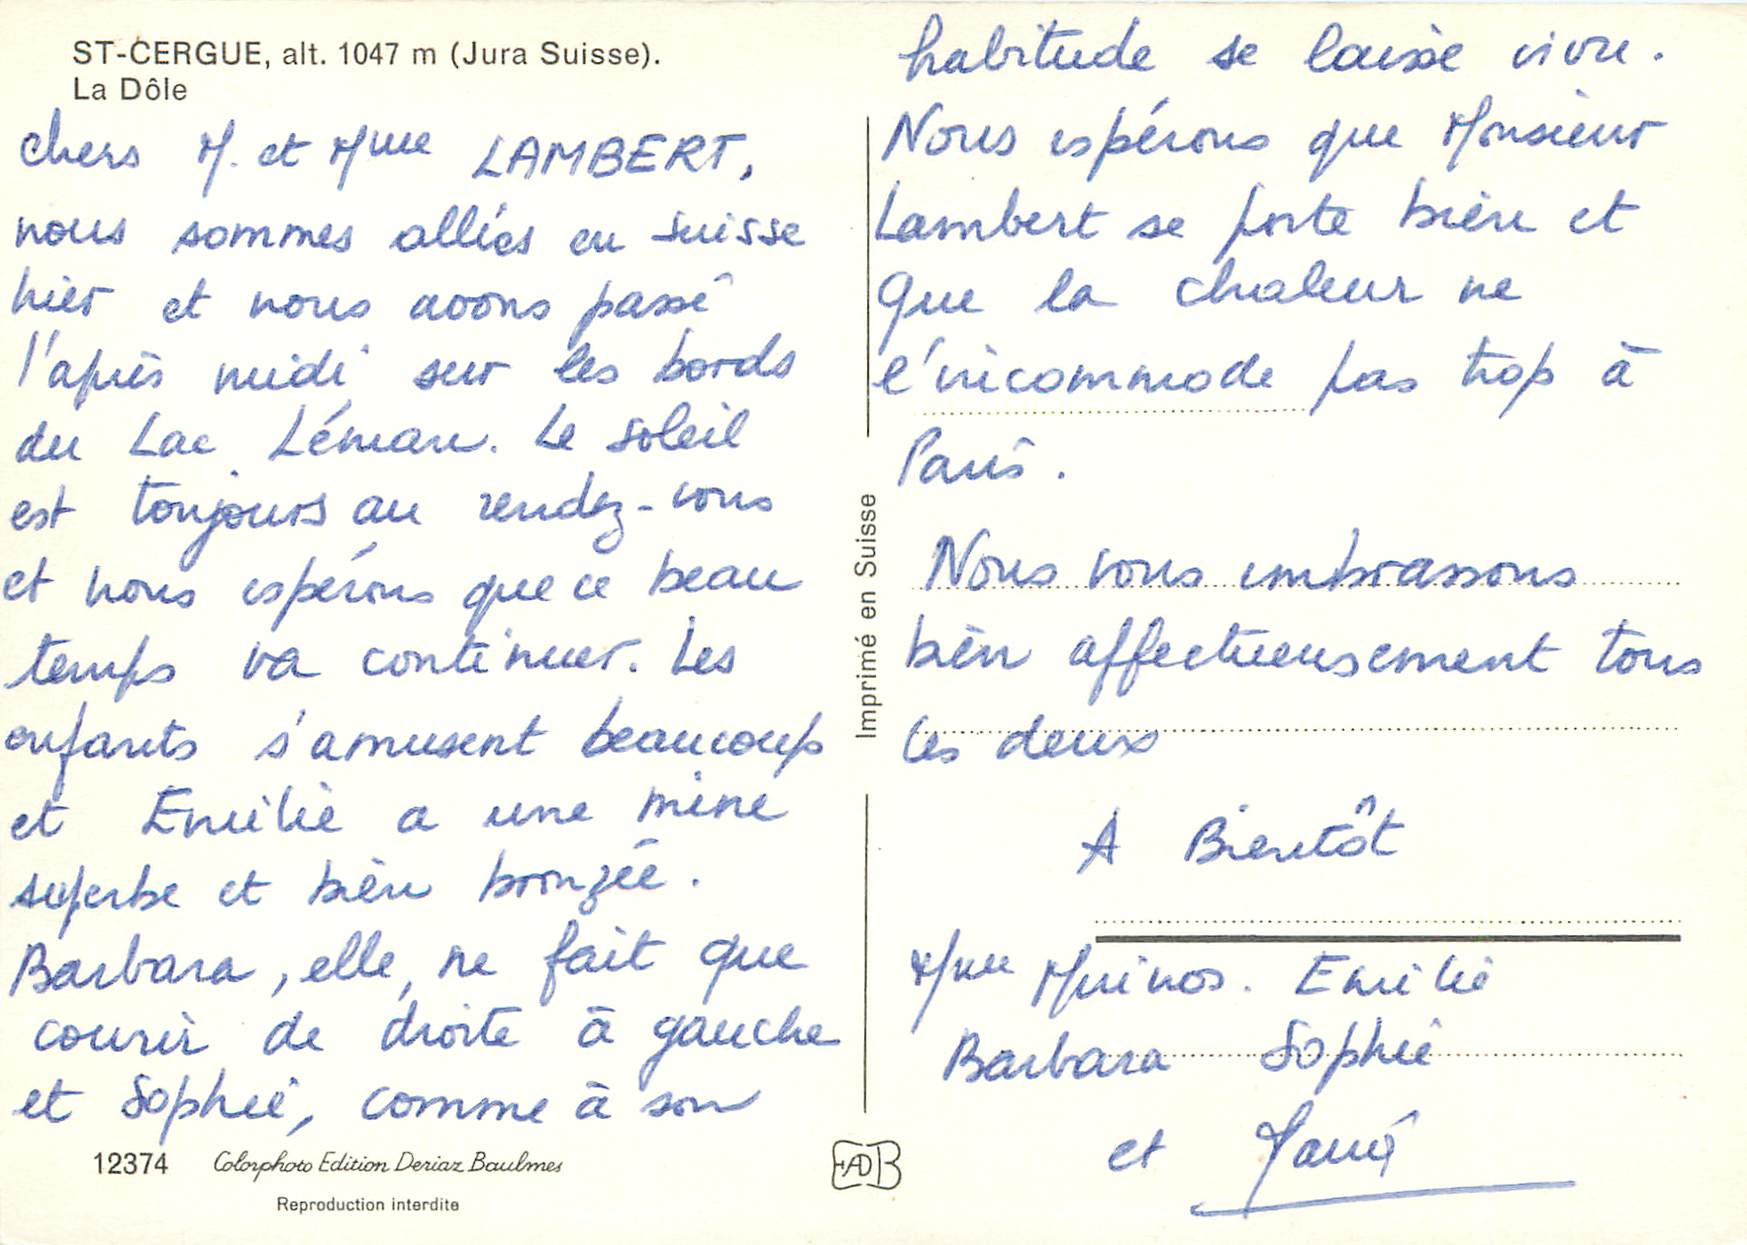 ST-CERGUE, alt. 1047 m (Jura Suisse).
La Dôle
chers M. et Mme LAMBERT,
nous sommes alliés en suisse
hier et nous avons passé
l'après midi sur les bords
du Lac Léman. Le soleil
est toujours au rendez-vous
et nous espérons que ce beau
temps va continuer. Les
enfants s'amusent beaucoup
et Emilie a une mine
superbe et bien bronzée.
Barbara, elle, ne fait que
courir de droite à gauche
et Sophie, comme à son
12374 Colorphoto Edition Deriaz Baulmes
Reproduction interdite
Imprimé en Suisse
habitude se laisse vivre.
Nous espérons que Monsieur
Lambert se porte bien et
que la chaleur ne
l'incommode pas trop à
Paris.
Nous vous embrassons
bien affectueusement tous
les deux
A Bientôt
Mme Emilie
Barbara Sophie
et
EADB